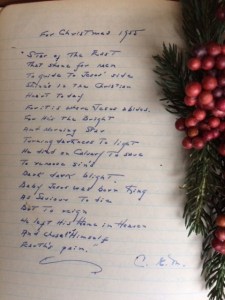 For Christmas 1955
"Star of The East
That shone for men
To guide To Jesus' side
Shine in the Christian
Heart Today
For it is where Jesus abides.
For He's the Bright
And Morning Star
Turning darkness To light
He died on Calvary To save
To remove sin's
Dark dark blight"
Baby Jesus was born King
As Saviour To die
But To reign
He left His Home in Heaven
And Himself
Death's pain."